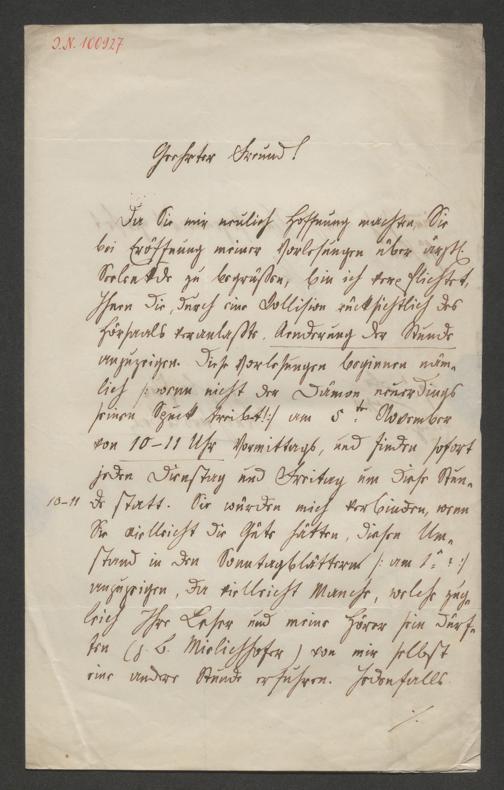 I.N. 100927
Geehrter Freund!
Da Sie mir neulich Hoffnung machten, Sie
bei Eröffnung meiner Vorlesungen über ärztl.
Seelenkde zu begrüßen, bin ich verpflichtet,
Ihnen die, durch eine Collision rücksichtlich des
Hörsaals veranlaßte, Aenderung der Stunde
anzuzeigen. Diese Vorlesungen beginnen näm-
lich /: wenn nicht der Dämon neuerdings
seinen Spuck treibt! :/ am 5ten November
von 10-11 Uhr Vormittags, und finden sofort
jeden Dienstag und Freitag um diese Stun-
10-11 de statt. Sie würden mich verbinden, wenn
Sie vielleicht die Güte hätten, diesen Um-
stand in den Sonntagsblättern /: am :/
anzuzeigen, da vielleicht Manche, welche zug-
leich Ihre Leser und meine Hörer sein dürf-
ten (z. B. Mielichhofer) von mir selbst
eine andere Stunde erfuhren. Jedenfalls
./.